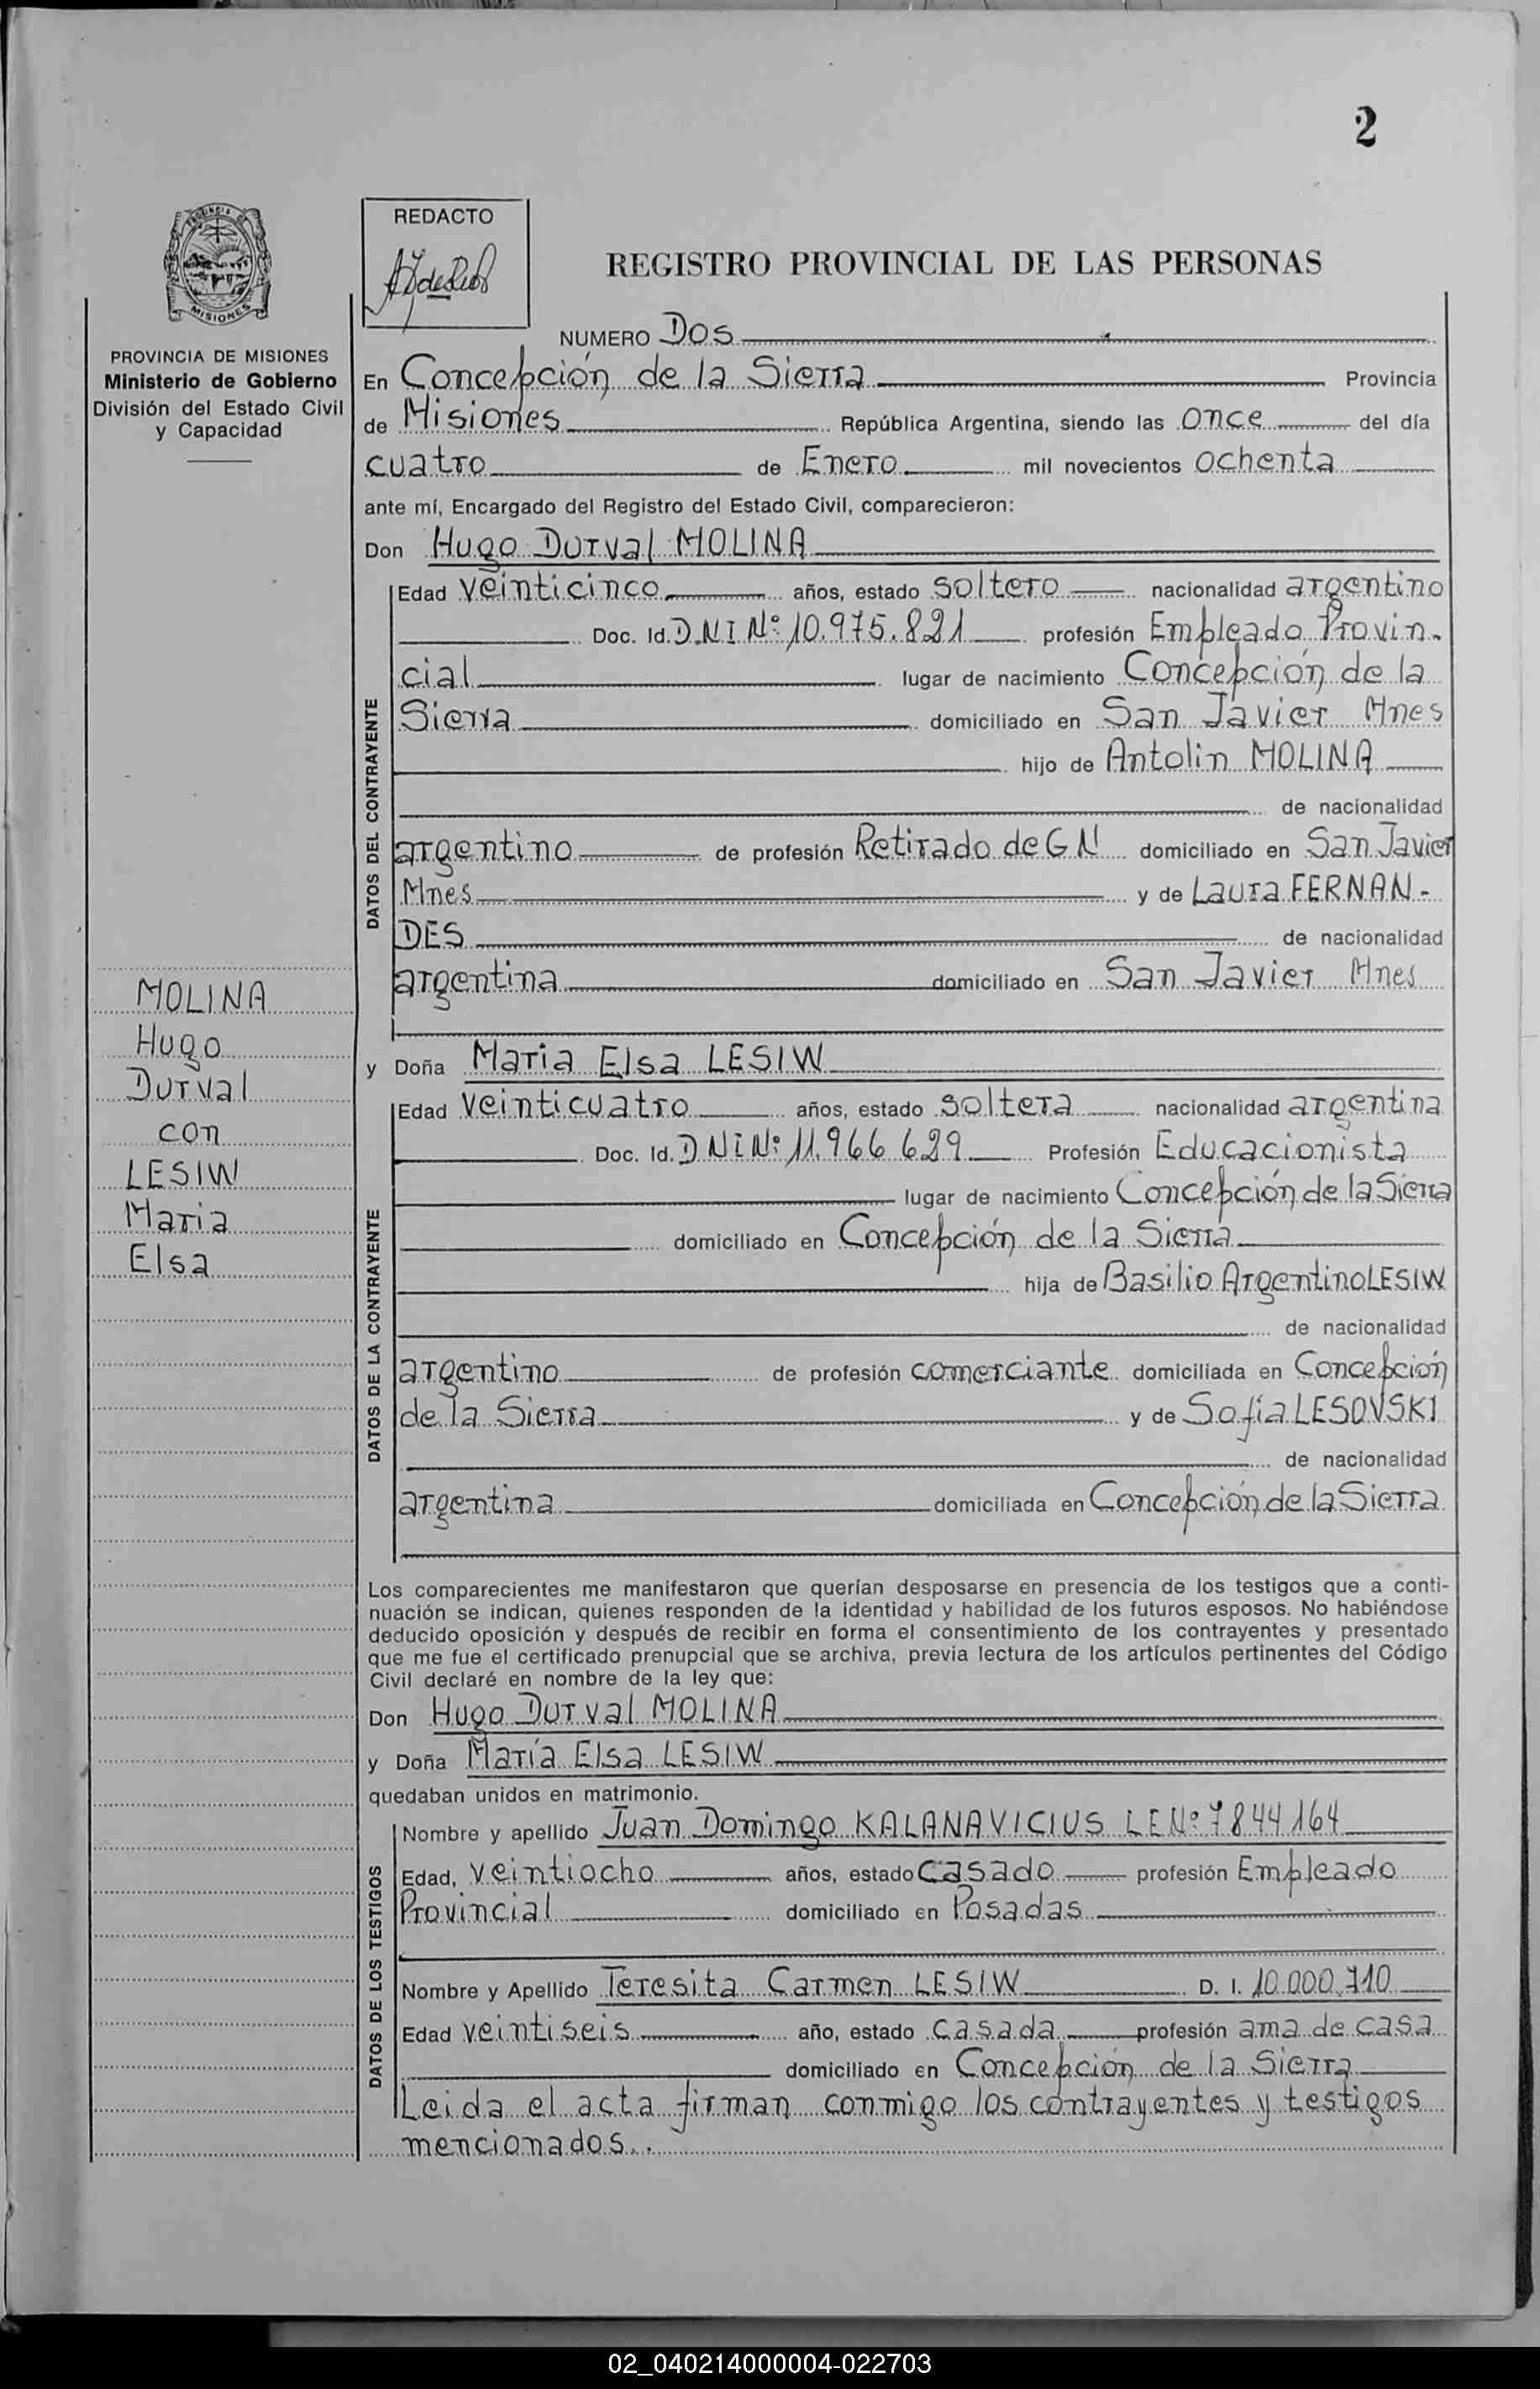 2
REDACTO
REGISTRO PROVINCIAL DE LAS PERSONAS
PROVINCIA DE MISIONES
Ministerio de Gobierno
División del Estado Civil
y Capacidad
NUMERO Dos
En Concepción de la Sierra Provincia
de Misiones República Argentina, siendo las once del día
cuatro de Enero mil novecientos ochenta
ante mí, Encargado del Registro del Estado Civil, comparecieron:
Don Hugo Durval MOLINA
DATOS DEL CONTRAYENTE
Edad veinticinco años, estado soltero nacionalidad argentino
Doc. Id. D.N.I Nº 10.975.821 profesión Empleado Provin-
cial lugar de nacimiento Concepción de la
Sierra domiciliado en San Javier Mnes
hijo de Antolin MOLINA
de nacionalidad
argentino de profesión Retirado de G N domiciliado en San Javier
Mnes y de Laura FERNAN-
DES de nacionalidad
argentina domiciliado en San Javier Mnes
MOLINA
Hugo
Durval
con
LESIW
Maria
Elsa
y Doña Maria Elsa LESIW
DATOS DE LA CONTRAYENTE
Edad veinticuatro años, estado soltera nacionalidad argentina
Doc. Id. D N I Nº 11.966 629 Profesión Educacionista
lugar de nacimiento Concepción de la Sierra
domiciliado en Concepción de la Sierra
hija de Basilio Argentino LESIW
de nacionalidad
argentino de profesión comerciante domiciliada en Concepción
de la Sierra y de Sofía LESOVSKI
de nacionalidad
argentina domiciliada en Concepción de la Sierra
Los comparecientes me manifestaron que querían desposarse en presencia de los testigos que a conti-
nuación se indican, quienes responden de la identidad y habilidad de los futuros esposos. No habiéndose
deducido oposición y después de recibir en forma el consentimiento de los contrayentes y presentado
que me fue el certificado prenupcial que se archiva, previa lectura de los artículos pertinentes del Código
Civil declaré en nombre de la ley que:
Don Hugo Durval MOLINA
y Doña María Elsa LESIW
quedaban unidos en matrimonio.
DATOS DE LOS TESTIGOS
Nombre y apellido Juan Domingo KALANAVICIUS L E Nº 7844164
Edad, veintiocho años, estado casado profesión Empleado
Provincial domiciliado en Posadas
Nombre y Apellido Teresita Carmen LESIW D. I. 10.000.710
Edad veintiseis año, estado casada profesión ama de casa
domiciliado en Concepción de la Sierra
Leida el acta firman conmigo los contrayentes y testigos
mencionados..
02_040214000004-022703